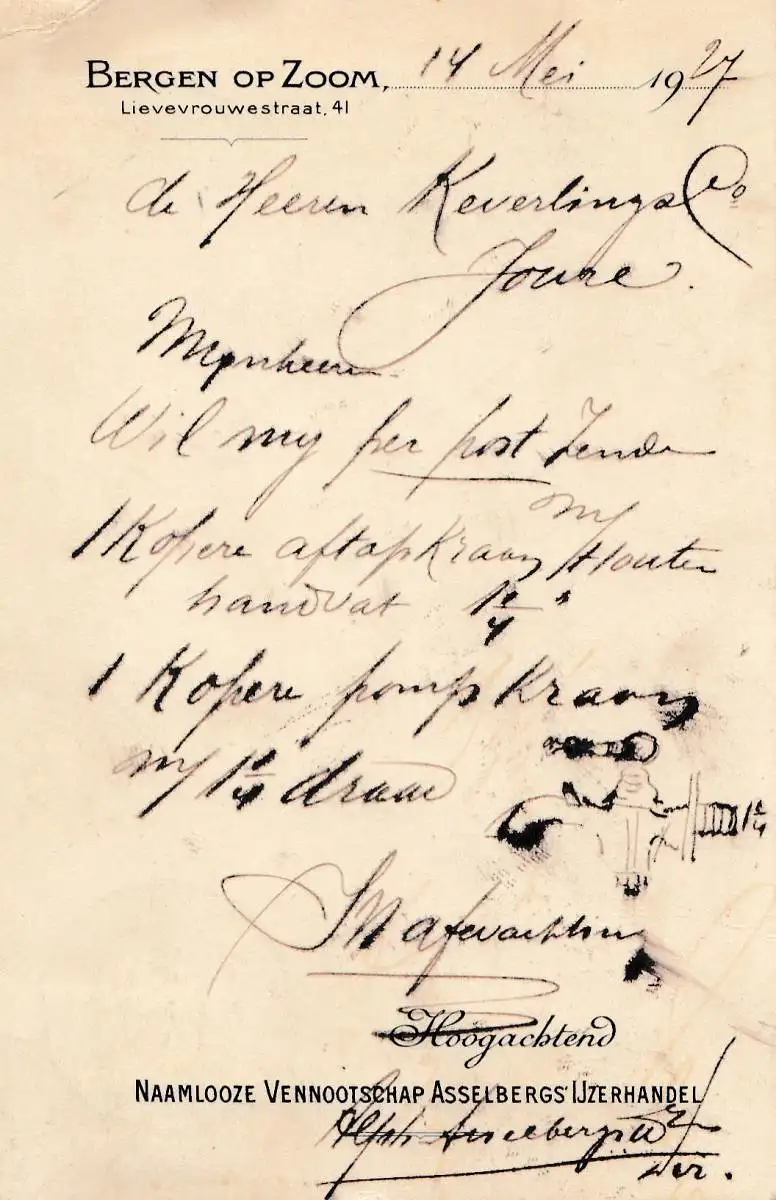 BERGEN OP ZOOM, 14 Mei 1927
Lievevrouwestraat, 41
de Heeren Keverlings Co
Joure.
Mynheeren
Wil my per post Zenden
1 Kopere aftapKraan m/ Houten
handvat 1 1/4"
1 Kopere pomp Kraan
m/ 1 1/4 draad
1 1/4
In afwachting
Hoogachtend
NAAMLOOZE VENNOOTSCHAP ASSELBERGS' IJZERHANDEL
Alph Asselbergs
Dir.